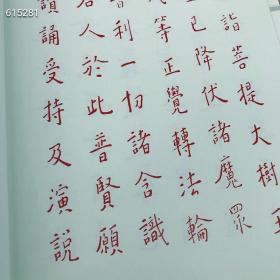 615281
詣菩提大樹王
已降伏諸魔眾
等正覺轉法輪
利一切諸含識
人於此普賢願
誦受持及演說